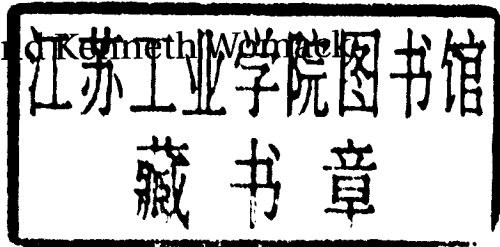 nd Kenneth Womack
江苏工业学院图书馆
藏书章